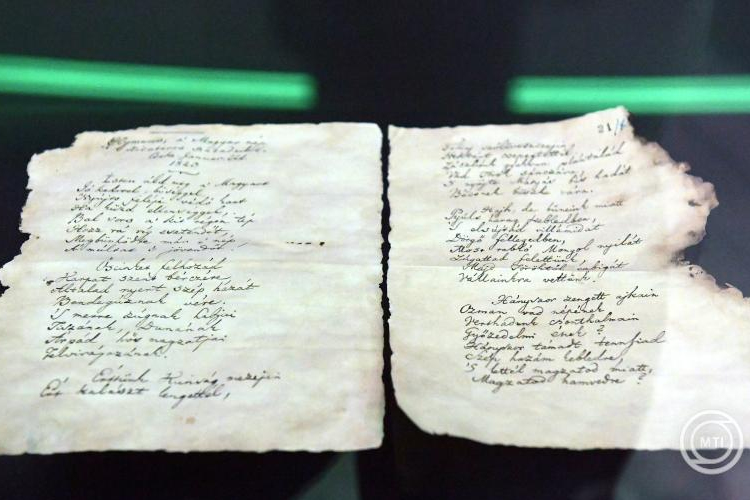 Hymnus, a' Magyar nép
zivataros századaiból.
Januar
1823
Isten áldd meg a' Magyart
Jó kedvvel, bőséggel,
Nyújts feléje védő kart
Ha küzd ellenséggel;
Bal sors a' kit régen tép
Hozz rá víg esztendőt,
Megbűnhödte már e' nép
A' múltat 's jövendőt.
Őseinket felhozád
Kárpát szent bérczére,
Általad nyert szép hazát
Bendegúznak vére.
'S merre zúgnak habjai
Tiszának, Dunának
Árpád hős magzatjai
Felvirágozának.
Értünk Kunság mezein
Ért kalászt lengettél,
21/
Tokaj szőlővesszein
Nektárt csepegtettél.
Zászlónk gyakran plántálád
Vad török sánczára,
'S nyögte Mátyás bús hadát
Bécsnek büszke vára.
Hajh, de bűneink miatt
Gyúlt harag kebledben,
'S elsújtád villámidat
Dörgő fellegedben,
Most rabló Mongol nyilát
Zúgattad felettünk,
Majd töröktől rabigát
Vállainkra vettünk.
Hányszor zengett ajkain
Ozman vad népének
Vert hadunk csonthalmain
Győzedelmi ének?
Hányszor támadt tennfiad
Szép hazám kebledre,
'S lettél magzatod miatt,
Magzatod hamvedre?
MTI